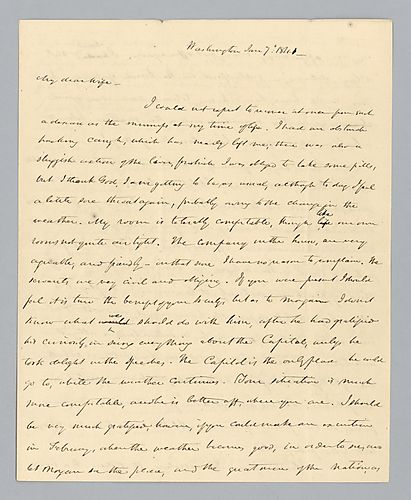 Washington Jan 7th 1841
My dear Wife
I could not expect to recover at once from such
a disease as the mumps at my time of life. I had an obstinate
hacking cough, which has nearly left me, there was also a
sluggish action of the liver, for which I was obliged to take some pills,
but I thank God, I am getting to be as usual, although to day I feel
a little sore throat again, probably owing to the change in the
weather. My room is tolerably comfortable, though like our own
rooms not quite air tight. The Company in the house, are very
agreeable, and friendly – in that sense I have no reason to complain. The
servants are very civil and obliging. If you were present I should
feel at ease the benefit of your society, but as to Morgan I do not
know what we should do with him, after he had gratified
his curiosity, in seeing everything about the Capitol, unless he
took delight in the Speeches. The Capitol is the only place he could
go to, while the weather continues. Your situation is much
more comfortable, and he is better off, where you are. I should
be very much gratified, however, if you could make an excursion
in February, when the weather becomes good, in order to see, and
let Morgan see the place, and the great men of the Nation, as